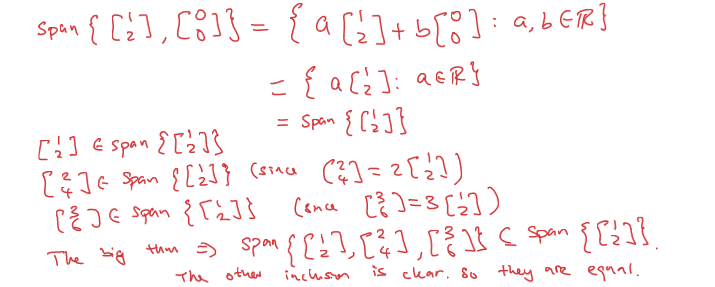 Span { [1 2], [0 0] } = { a [1 2] + b [0 0] : a, b ∈ ℝ }
= { a [1 2] : a ∈ ℝ }
= Span { [1 2] }
[1 2] ∈ span { [1 2] }
[2 4] ∈ Span { [1 2] } (since [2 4] = 2 [1 2])
[3 6] ∈ Span { [1 2] } (since [3 6] = 3 [1 2])
The big thm ⇒ span { [1 2], [2 4], [3 6] } ⊆ Span { [1 2] }.
The other inclusion is clear. So they are equal.